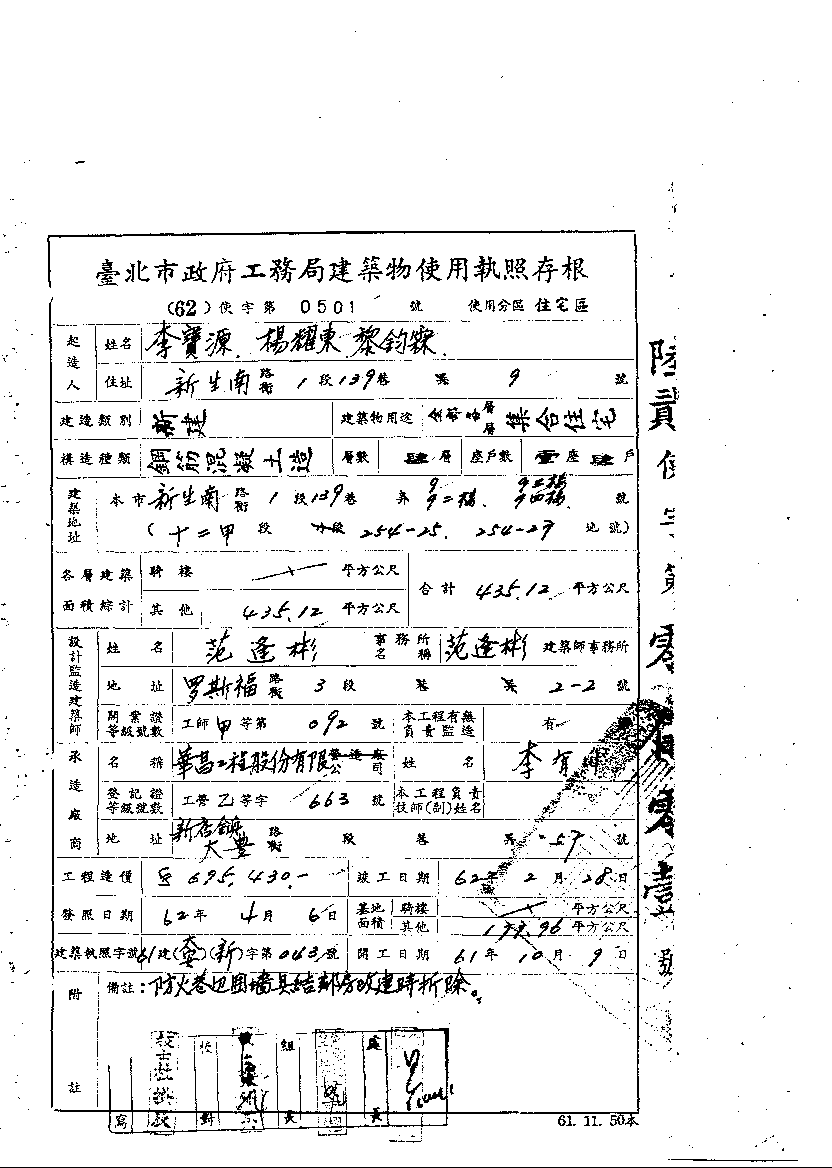 臺北市政府工務局建築物使用執照存根
(62)使字第 0501 號 使用分區 住宅區
起造人 姓名 李寶源、楊耀東 黎鈞霖
住址 新生南 路街 1 段 139 巷 弄 9 號
建造類別 新建 建築物用途 層層 集合住宅
構造種類 鋼筋混凝土造 層數 肆 層 座戶數 壹 座 肆 戶
建築地址 本市 新生南 路街 1 段 139 巷 弄 9 9二樓、9三樓 9四樓 號
(十二甲 段 小段 254-25、254-27 地號)
各層建築面積綜計 騎樓 平方公尺 合計 435.12 平方公尺
其他 435.12 平方公尺
設計監造建築師 姓名 范逢彬 事務所名稱 范逢彬 建築師事務所
地址 罗斯福 路街 3 段 巷 弄 2-2 號
開業證等級號數 工師 甲 等第 092 號 本工程有無負責監造 有
承造廠商 名稱 華昌工程股份有限 營造廠公司 姓名 李有
登記證等級號數 工營 乙 等字 663 號 本工程負責技師(副)姓名
地址 新店鎮大豊 路街 段 巷 弄 57 號
工程造價 695,430.- 竣工日期 62 年 2 月 28 日
發照日期 62 年 4 月 6 日 基地面積 騎樓 平方公尺
其他 199.96 平方公尺
建築執照字號 61 建(安)(新)字第 063 號 開工日期 61 年 10 月 9 日
附註 備註:防火巷四圍墻具結都房改建時折除。
寫 校對 組長 處長
61. 11. 50本
陸貳使字第零伍零壹號